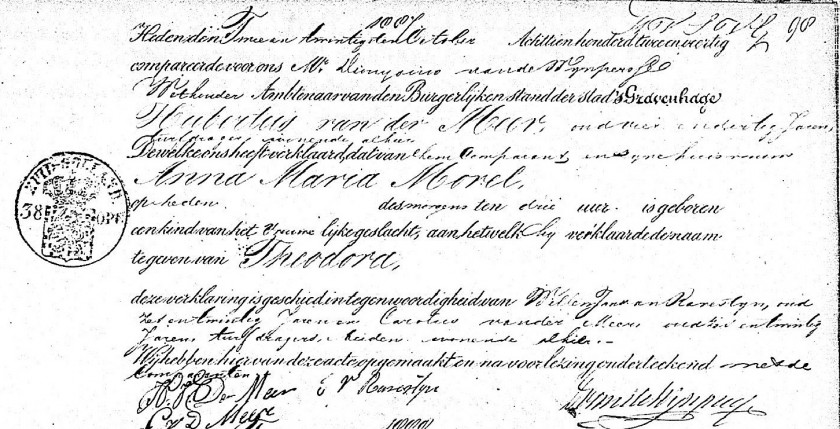 1887
98
Heden den Twee en twintigsten October Achttienhonderd twee en veertig
compareerde voor ons Mr. van de
Wethouder Ambtenaar van den Burgerlijken stand der stad 's Gravenhage
Hubertus van der Meer, oud vier en dertig Jaren
turfdrager wonende alhier
Dewelke ons heeft verklaard, dat van hem Comparant, en zyne huisvrouw
Anna Maria Morel,
op heden des morgens ten drie uur is geboren
een kind van het vrouwelijke geslacht, aan hetwelk hij verklaarde den naam
te geven van Theodora,
ZUID-HOLLAND
38 OPC
deze verklaring is geschied in tegenwoordigheid van Willem van oud
zes en twintig Jaren en Carolus van der Meer oud en twintig
Jaren turfdragers, beiden wonende alhier.
Wij hebben hiervan deze acte opgemaakt en na voorlezing onderteekend met de
Comparanten
Der Meer
C v D Meer